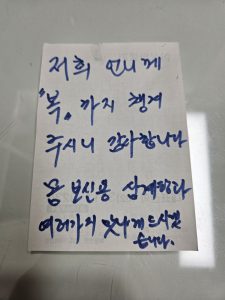 저희 언니께
"복" 까지 챙겨
주시니 감사합니다
몸 보신용 삼계탕과
여러가지 맛나게 드시겟
습니다.